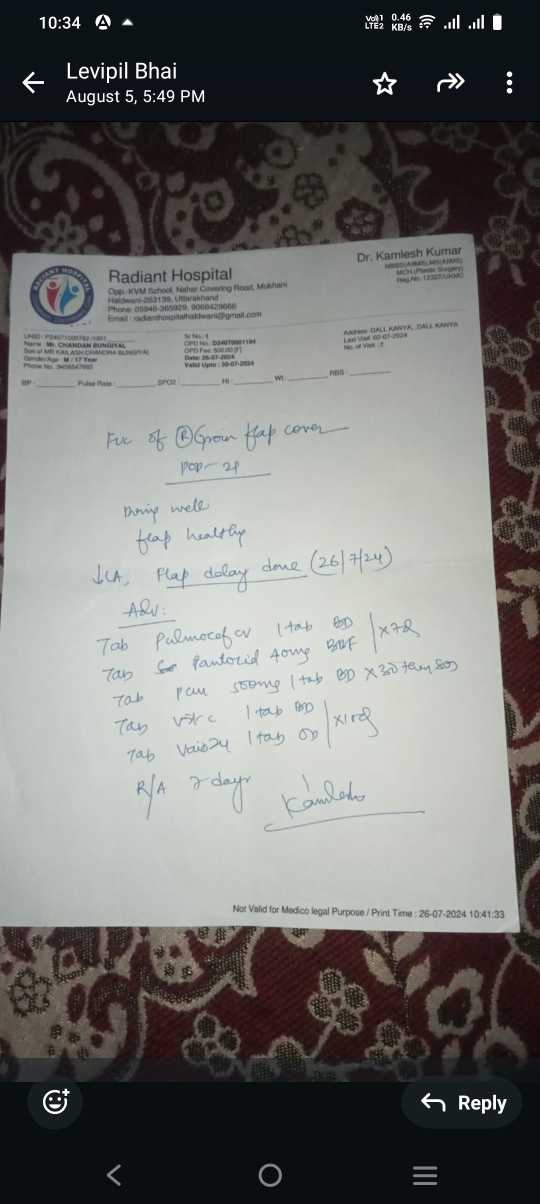 10:34
Vo)) 1 LTE2 0.46 KB/s
Levipil Bhai
August 5, 5:49 PM
RADIANT HOSPITAL
Radiant Hospital
Opp.-KVM School, Nahar Covering Road, Mukhani
Haldwani-263139, Uttarakhand
Phone: 05946-365929, 9068429666
Email : radianthospitalhaldwani@gmail.com
Dr. Kamlesh Kumar
MBBS(AIIMS),MS(AIIMS)
MCH(Plastic Surgery)
Reg.No. 12327/UKMC
Name: Mr. CHANDAN BUNGIYAL
Son of MR KAILASH CHANDRA BUNGIYAL
Gender/Age : M / 17 Year
Phone No.
Sr No.: 1
OPD No.:
OPD Fee: 500.00
Date: 26-07-2024
Valid Upto : 30-07-2024
Address :DALL KANYA, ,DALL KANYA
Last Visit :03-07-2024
No. of Visit : 2
BP : Pulse Rate : SPO2 : Ht : Wt : RBS :
of (R) Groin flap cover
POD-
Doing well
flap healthy
↓LA, Flap delay done (26/7/24)
Adv:
Tab Pulmocef cv 1 tab BD
Tab Pantocid 40mg BBF
Tab 500mg 1 tab BD then SOS
Tab vit c 1 tab BD
Tab 1 tab OD
R/A 7 days
Kamlesh
Not Valid for Medico legal Purpose / Print Time : 26-07-2024 10:41:33
Reply